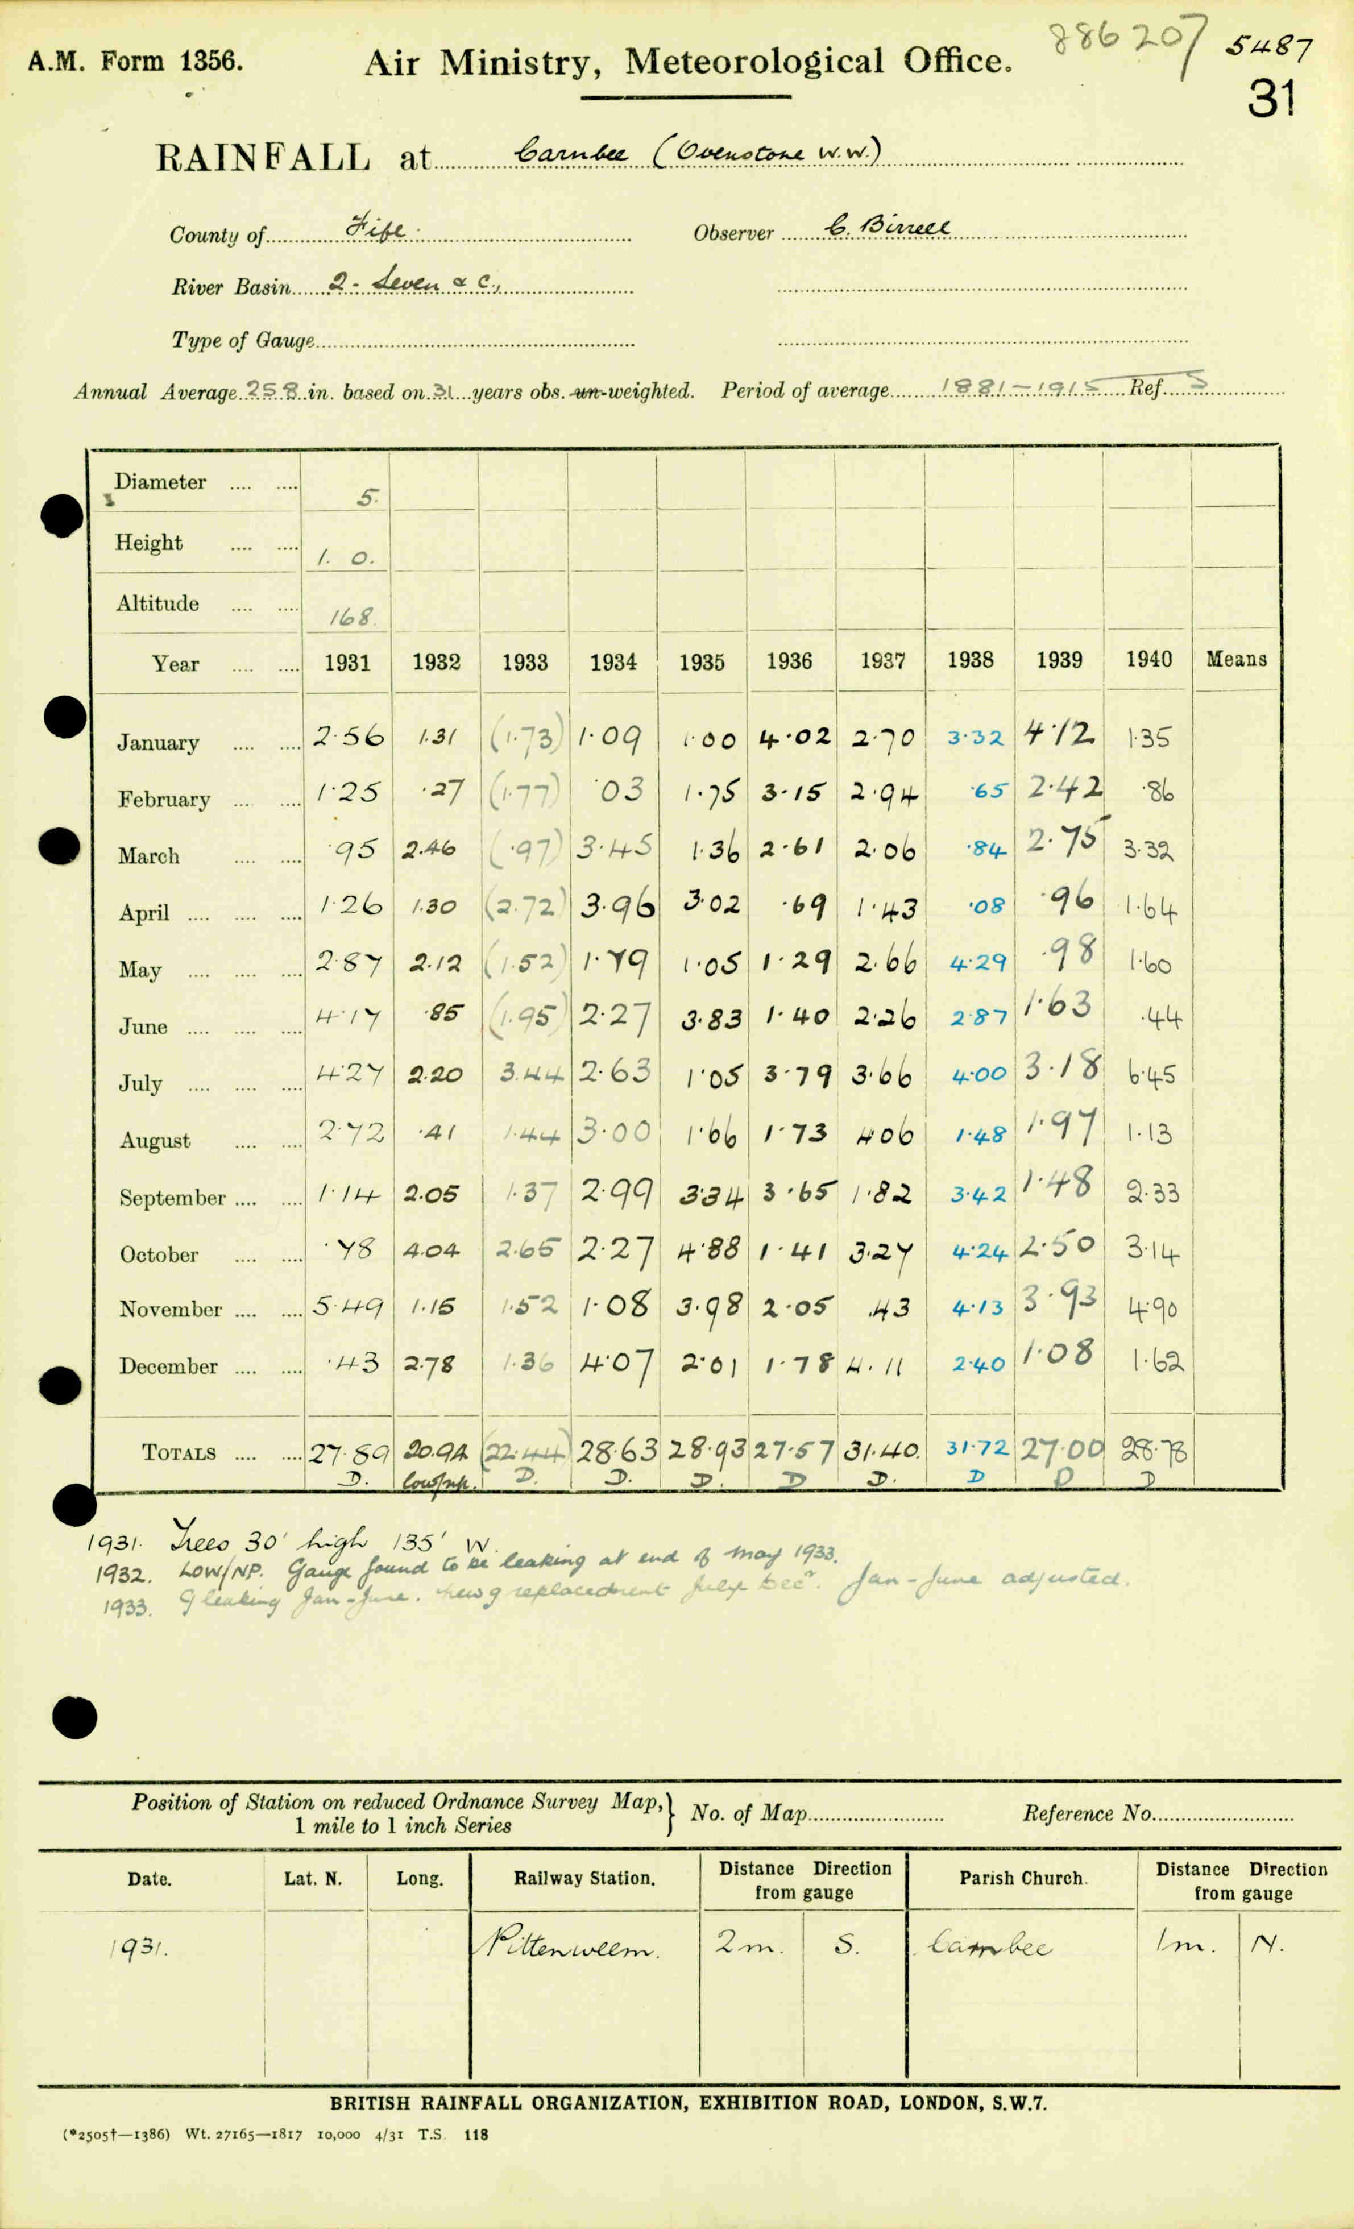 A.M. Form 1356.
Air Ministry, Meteorological Office.
886207
5487
31
RAINFALL at Carnbee (Ovenstone W.W.)
County of Fife. Observer C. Birrell
River Basin 2 - Leven & C.,
Type of Gauge
Annual Average 25.8 in. based on 31 years obs. un-weighted. Period of average 1881-1915 Ref. S
Diameter .... .... 5.
Height .... .... 1. 0.
Altitude .... .... 168.
Year .... .... 1931 1932 1933 1934 1935 1936 1937 1938 1939 1940 Means
January .... .... 2.56 1.31 (1.73) 1.09 1.00 4.02 2.70 3.32 4.12 1.35
February .... .... 1.25 .27 (1.77) .03 1.75 3.15 2.94 .65 2.42 .86
March .... .... .95 2.46 (.97) 3.45 1.36 2.61 2.06 .84 2.75 3.32
April .... .... .... 1.26 1.30 (2.72) 3.96 3.02 .69 1.43 .08 .96 1.64
May .... .... .... 2.87 2.12 (1.52) 1.79 1.05 1.29 2.66 4.29 .98 1.60
June .... .... .... 4.17 .85 (1.95) 2.27 3.83 1.40 2.26 2.87 1.63 .44
July .... .... .... 4.27 2.20 3.44 2.63 1.05 3.79 3.66 4.00 3.18 6.45
August .... .... 2.72 .41 1.44 3.00 1.66 1.73 4.06 1.48 1.97 1.13
September .... .... 1.14 2.05 1.37 2.99 3.34 3.65 1.82 3.42 1.48 2.33
October .... .... .78 4.04 2.65 2.27 4.88 1.41 3.27 4.24 2.50 3.14
November .... .... 5.49 1.15 1.52 1.08 3.98 2.05 .43 4.13 3.93 4.90
December .... .... .43 2.78 1.36 4.07 2.01 1.78 4.11 2.40 1.08 1.62
TOTALS .... .... 27.89 20.94 (22.44) 28.63 28.93 27.57 31.40. 31.72 27.00 28.78
D. low/np. D. D. D. D D. D D D
1931. Trees 30' high 135' W.
1932. LOW/NP. Gauge found to be leaking at end of May 1933.
1933. G leaking Jan-June. New g replacement July Decr. Jan-June adjusted.
Position of Station on reduced Ordnance Survey Map, 1 mile to 1 inch Series } No. of Map Reference No.
Date. Lat. N. Long. Railway Station. Distance Direction from gauge Parish Church. Distance Direction from gauge
1931. Pittenweem. 2 m. S. Carnbee 1 m. N.
BRITISH RAINFALL ORGANIZATION, EXHIBITION ROAD, LONDON, S.W.7.
(*2505†—1386) Wt. 27165—1817 10,000 4/31 T.S. 118